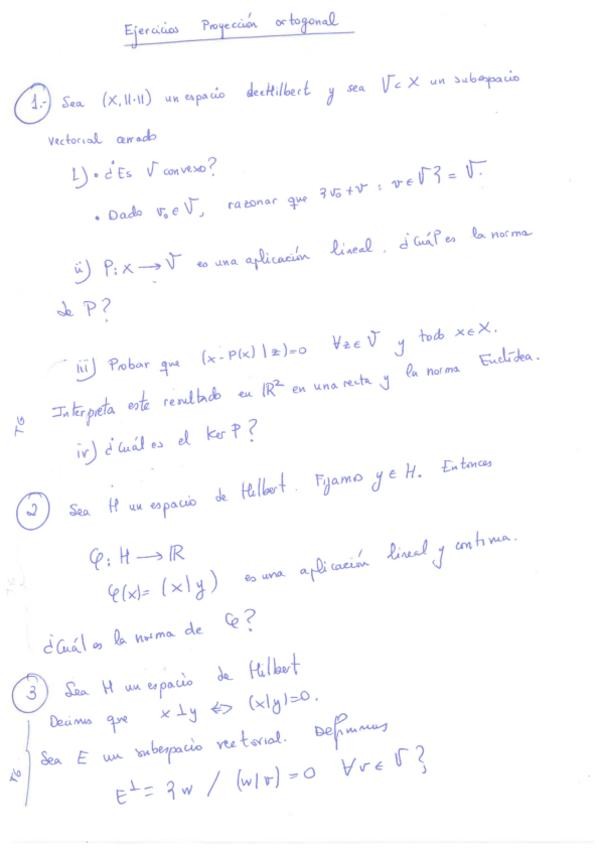 Ejercicios Proyección ortogonal
1.- Sea (X, ||·||) un espacio de Hilbert y sea V⊂X un subespacio
vectorial cerrado
i) • ¿Es V convexo?
• Dado v₀∈V, razonar que {v₀+v : v∈V} = V.
ii) P: X → V es una aplicación lineal. ¿Cuál es la norma
de P?
iii) Probar que (x-P(x) | z)=0 ∀z∈V y todo x∈X.
Interpreta este resultado en ℝ² en una recta y la norma Euclídea.
iv) ¿Cuál es el Ker P?
2 Sea H un espacio de Hilbert. Fijamos y∈H. Entonces
φ: H → ℝ
φ(x)= (x|y) es una aplicación lineal y continua.
¿Cuál es la norma de φ?
3 Sea H un espacio de Hilbert
Decimos que x⊥y ⇔ (x|y)=0.
Sea E un subespacio vectorial. Definimos
E^⊥ = {w / (w|v)=0 ∀v∈V}